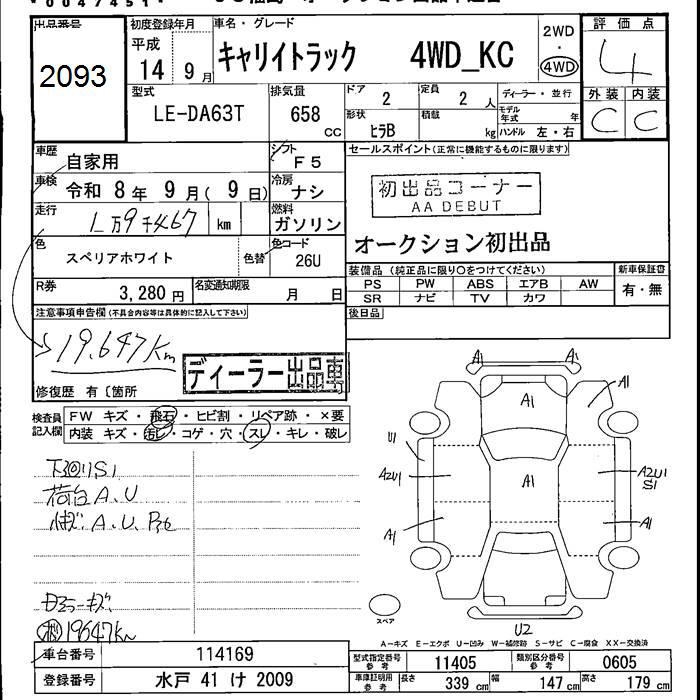 出品番号
2093
初度登録年月
平成
14 9月
車名・グレード
キャリイトラック 4WD_KC
2WD
4WD
評価点
4
外装 内装
C C
型式
LE-DA63T
排気量
658
CC
ドア
2
定員
2 人
形状
ヒラB
積載
kg
ディーラー・並行
モデル年式 年
ハンドル 左・右
車歴
自家用
シフト
F5
車検
令和 8年 9月( 9日)
冷房
ナシ
走行
1万9千467 km
燃料
ガソリン
色
スペリアホワイト
色替
色コード
26U
R券
3,280円
名変通知期限
月 日
セールスポイント(正常に機能するものに限ります)
初出品コーナー
AA DEBUT
オークション初出品
装備品(純正品に限り○をつけてください)
新車保証書
PS PW ABS エアB AW
SR ナビ TV カワ
有・無
後日品
注意事項申告欄(不具合内容等は具体的に記入して下さい)
19.647Km
ディーラー出品車
修復歴 有〔箇所
検査員記入欄
FW キズ・飛石・ヒビ割・リペア跡・×要
内装 キズ・汚レ・コゲ・穴・スレ・キレ・破レ
下回りS1
荷台A.U
A.U.
19647Km
A1 A1
A1 A1
U1
A2U1 A1 A2U1
S1
A1 A1
U2
スペア
A-キズ E-エクボ U-凹み W-補修跡 S-サビ C-腐食 XX-交換済
車台番号 114169
登録番号 水戸 41 け 2009
型式指定番号 参考 11405
類別区分番号 参考 0605
車庫証明用 参考 長さ 339cm 幅 147cm 高さ 179cm